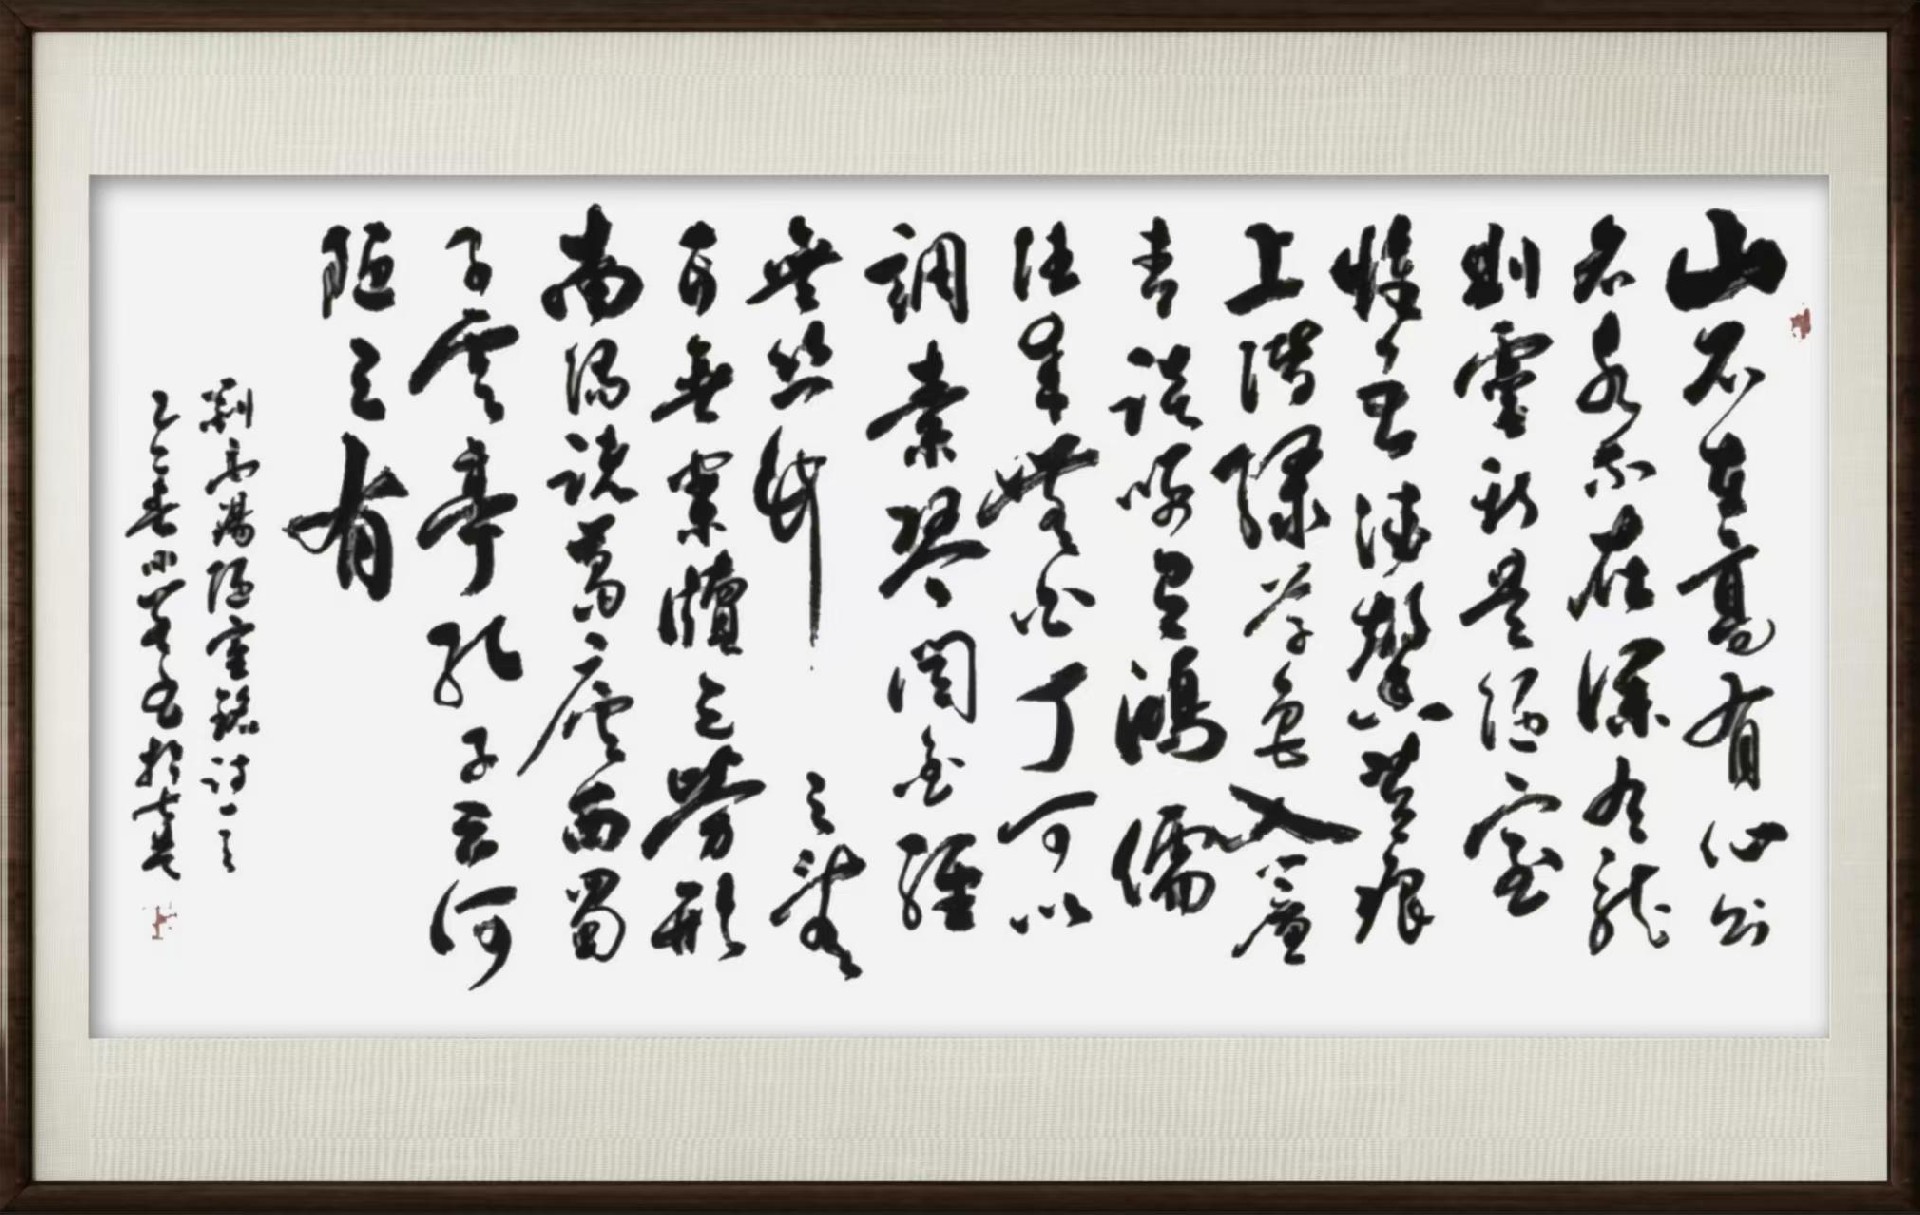 山不在高有仙則
名水不在深有龍
則靈斯是陋室
惟吾德馨苔痕
上階綠草色入簾
青談笑有鴻儒
往來無白丁可以
調素琴閱金經
無絲竹之亂
耳無案牘之勞形
南陽諸葛廬西蜀
子雲亭孔子云何
陋之有
劉禹錫陋室銘詩一
乙巳春書於